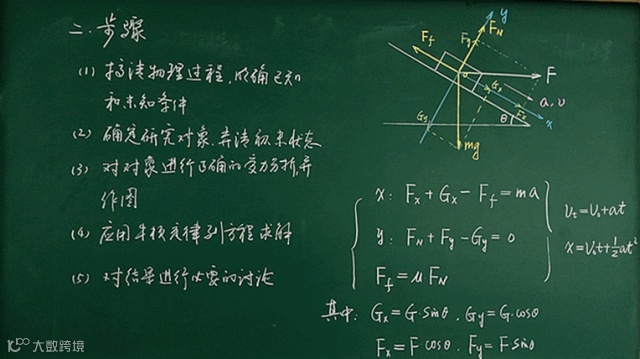 二. 步骤
(1) 搞清物理过程,明确已知
和未知条件
(2) 确定研究对象,弄清初末状态
(3) 对对象进行正确的受力分析,并
作图
(4) 应用牛顿定律列方程求解
(5) 对结果进行必要的讨论
y
F_N
F_y
F_f
o
F
G_x
a, υ
G_y
F_x
x
θ
mg
x: F_x + G_x − F_f = ma
y: F_N + F_y − G_y = 0
F_f = μF_N
υ_t = υ_0 + at
x = υ_0t + ½at²
其中: G_x = G·sinθ, G_y = G·cosθ
F_x = F·cosθ, F_y = F·sinθ
大数跨境